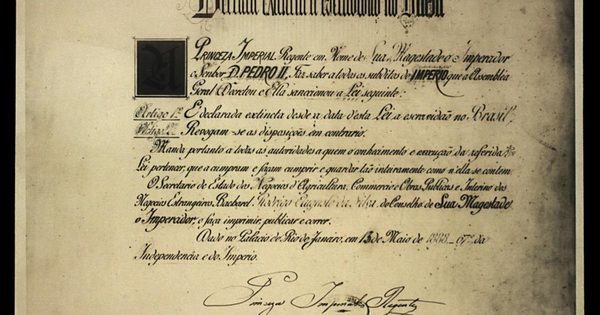 Declara extincta a escravidão no Brasil
A PRINCEZA IMPERIAL Regente em Nome de Sua Magestade o Imperador
o Senhor D. PEDRO II, faz saber a todos os subditos do IMPERIO que a Assembléa
Geral Decretou e Ella sanccionou a Lei seguinte:
Artigo 1º É declarada extincta desde a data d'esta Lei a escravidão no Brazil.
Artigo 2º Revogam-se as disposições em contrario.
Manda portanto a todas as autoridades a quem o conhecimento e execução da referida
Lei pertencer, que a cumpram e façam cumprir e guardar tão inteiramente como n'ella se contem.
O Secretario de Estado dos Negocios d'Agricultura, Commercio e Obras Publicas e Interino dos
Negocios Estrangeiros, Bacharel Rodrigo Augusto da Silva do Conselho de Sua Magestade
o Imperador, o faça imprimir, publicar e correr.
Dado no Palacio do Rio de Janeiro, em 13 de Maio de 1888 – 67º da
Independencia e do Imperio.
Princeza Imperial Regente